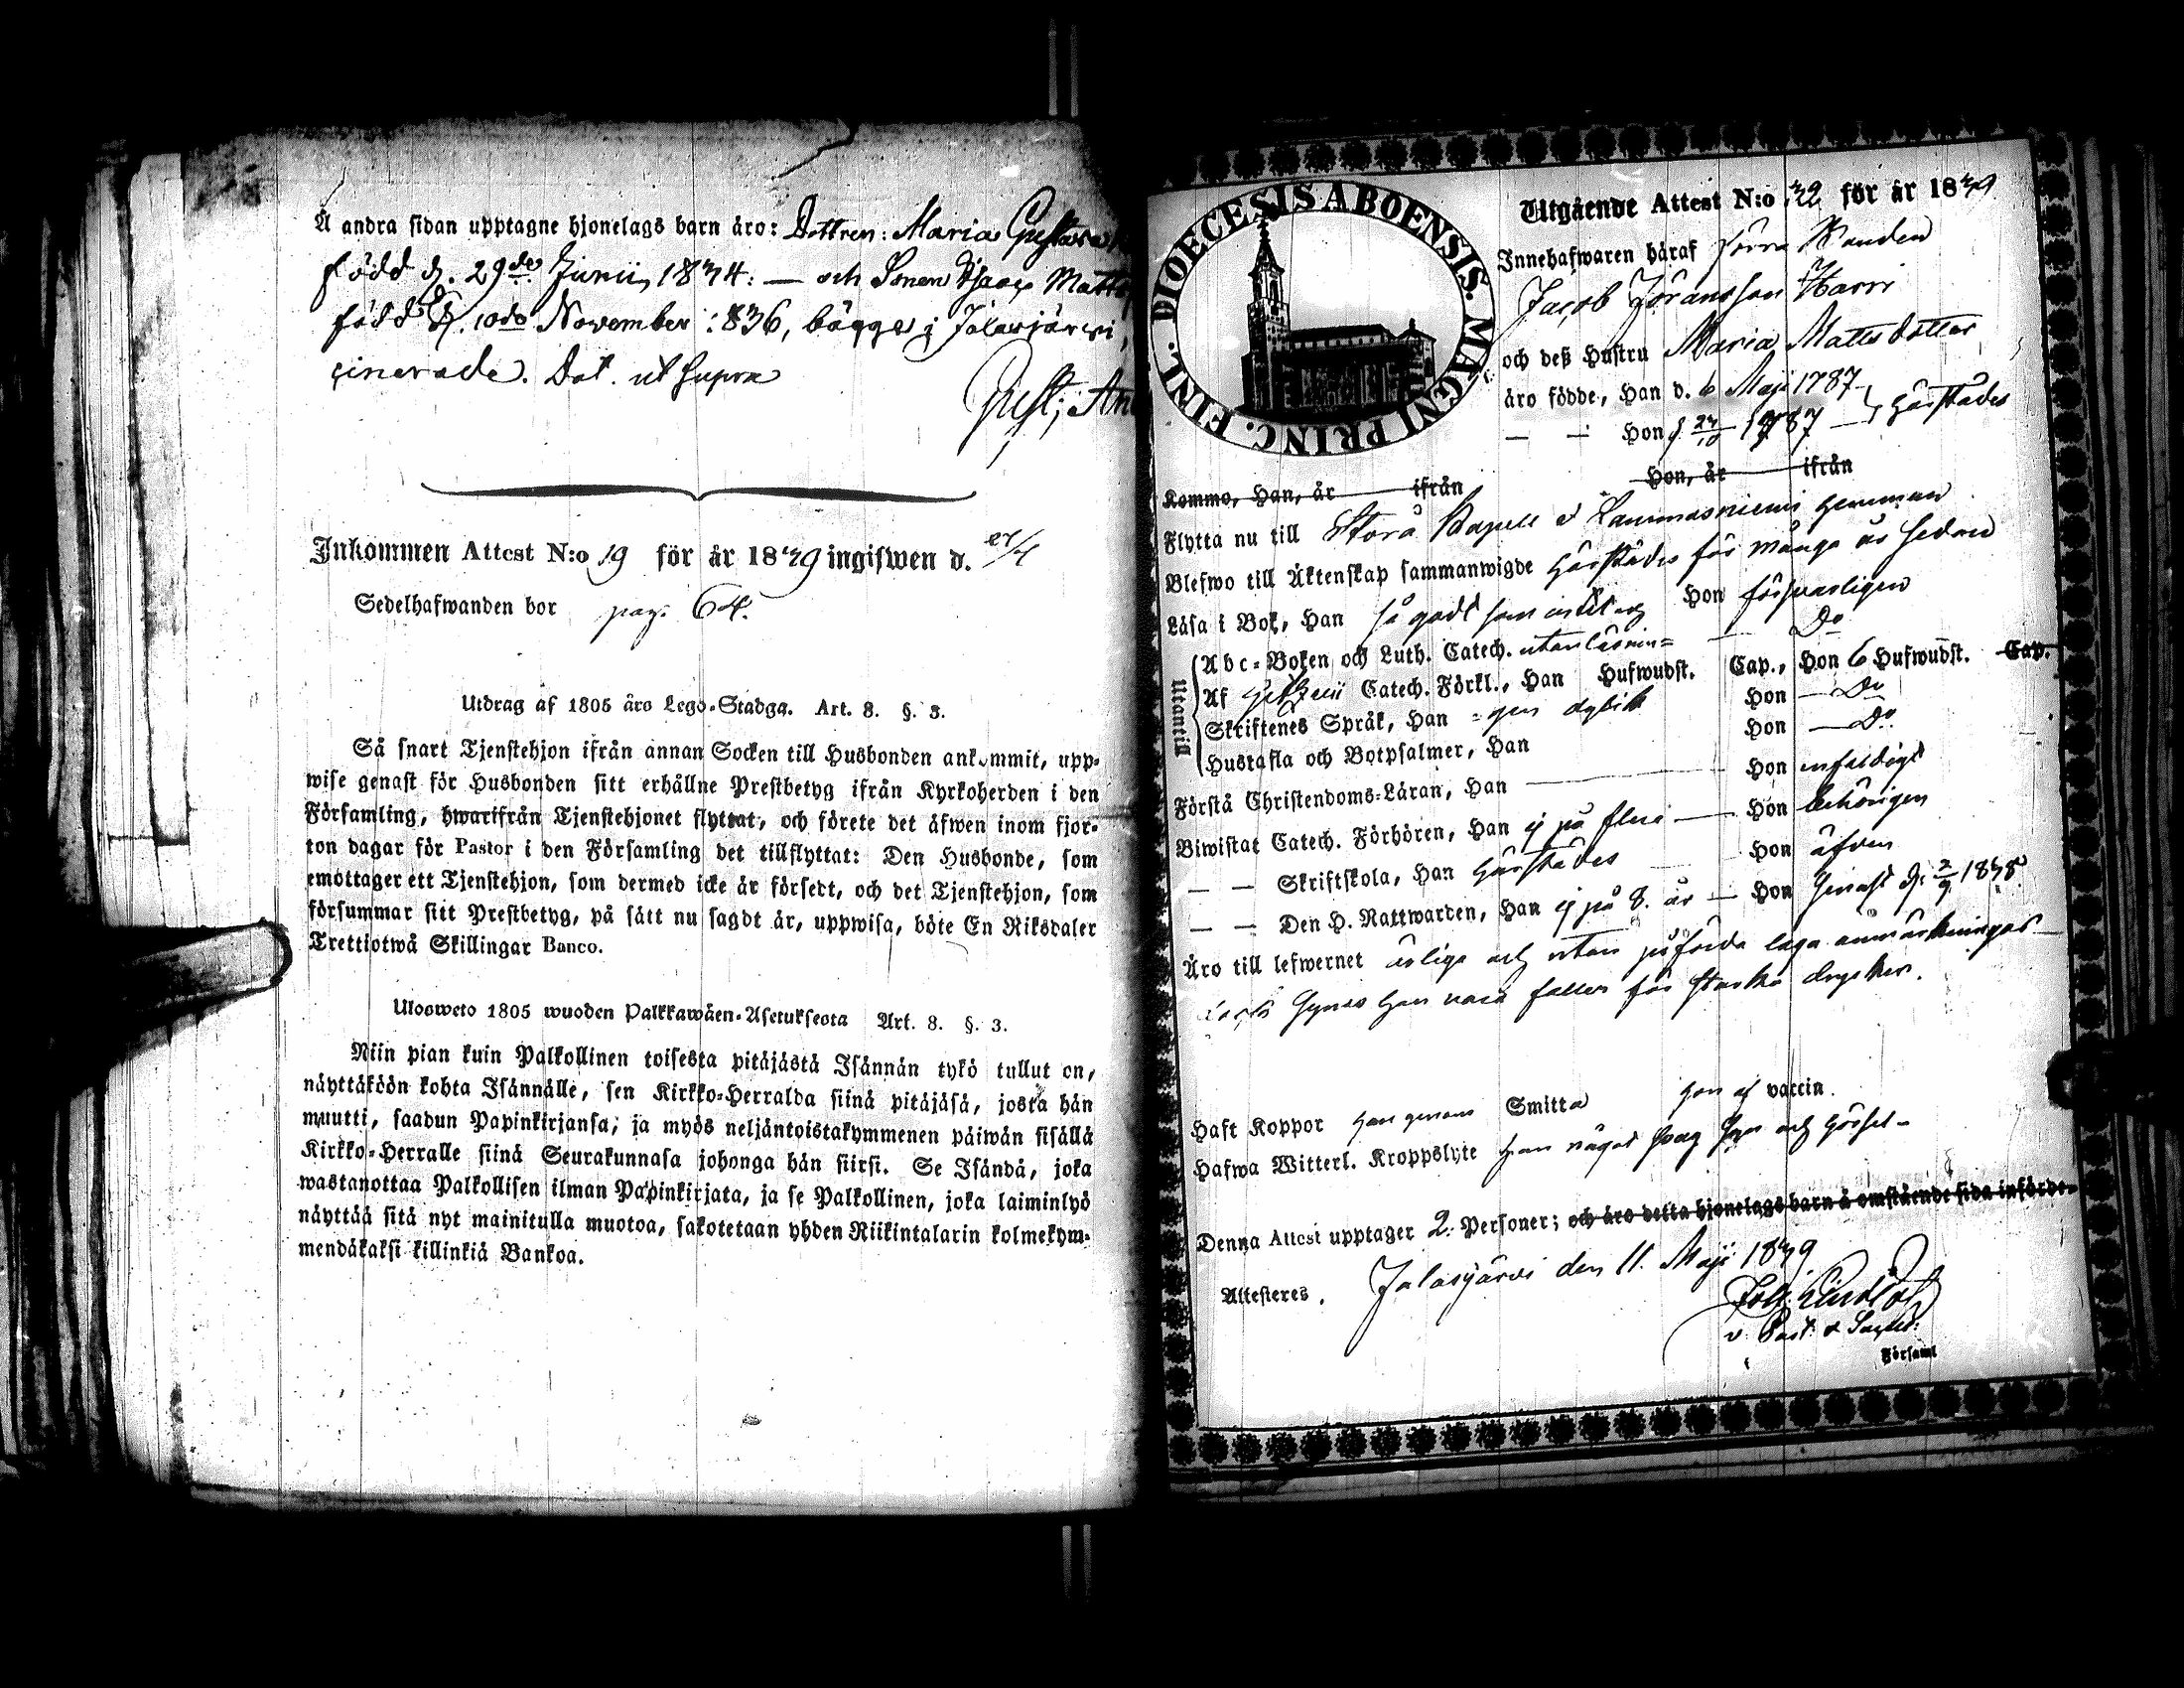 Å andra sidan upptagne hjonelags barn äro: Dottren: Maria Gustava
född d. 29de Junii 1834: — och Sonen Isaac Matts
född d. 10de November 1836, bägge i Jalasjärvi,
cinerade. Dat. ut supra
Gust. An
Inkommen Attest N:o 19 för år 1839 ingifwen d.
Sedelhafwanden bor pag. 64.
Utdrag af 1805 års Lego-Stadga. Art. 8. §. 3.
Så snart Tjenstehjon ifrån annan Socken till Husbonden ankommit, upp-
wise genast för Husbonden sitt erhållne Prestbetyg ifrån Kyrkoherden i den
Församling, hwarifrån Tjenstehjonet flyttat, och förete det äfwen inom fjor-
ton dagar för Pastor i den Församling det tillflyttat: Den Husbonde, som
emottager ett Tjenstehjon, som dermed icke är försedt, och det Tjenstehjon, som
försummar sitt Prestbetyg, på sätt nu sagdt är, uppwisa, böte En Riksdaler
Trettiotwå Skillingar Banco.
Ulosweto 1805 wuoden Palkkawäen-Asetuksesta Art. 8. §. 3.
Niin pian kuin Palkollinen toisesta pitäjästä Isännän tykö tullut on,
näyttäköön kohta Isännälle, sen Kirkko-Herralda siinä pitäjäsä, josta hän
muutti, saadun Papinkirjansa; ja myös neljäntoistakymmenen päiwän sisällä
Kirkko-Herralle siinä Seurakunnasa johonga hän siirsi. Se Isändä, joka
wastanottaa Palkollisen ilman Papinkirjata, ja se Palkollinen, joka laiminlyö
näyttää sitä nyt mainitulla muotoa, sakotetaan yhden Riikintalarin kolmekym-
mendäkaksi killinkiä Bankoa.
DIOECESIS ABOENSIS. MAGNI PRINC. FINL.
Utgående Attest N:o 32 för år 1839
Innehafwaren häraf förra Bonden
Jacob Jöransson Harri
och deß Hustru Maria Mattsdotter
äro födde, Han d. 6 Maji 1787
— — Hon d. 1787 härstädes
Kommo, Han, år ifrån Hon, år ifrån
Flytta nu till Storå Kapell å Lammasniemi hemman
Blefwo till Äktenskap sammanwigde härstädes för många år sedan
Läsa i Bok, Han så godt som intet Hon försvarligen
Utantill
Abc-Boken och Luth. Catech. utanläsnin= Do
Af Catech. Förkl., Han Hufwudst. Cap., Hon 6 Hufwudst. Cap.
Skriftenes Språk, Han =gen Hon — Do
Hustafla och Botpsalmer, Han Hon — Do
Förstå Christendoms-Läran, Han — Hon enfaldigt
Biwistat Catech. Förhören, Han ej på flera — Hon behörigen
— — Skriftskola, Han härstädes Hon äfven
— — Den H. Nattwarden, Han ej på 8. år — Hon senast d. 2/9 1838
Äro till lefwernet ärliga och utan påförda laga anmärkningar
synes han vara fallen för starka drycker.
Haft Koppor han genom Smitta hon af vaccin.
Hafwa Witterl. Kroppslyte han något svag syn och hörsel-
Denna Attest upptager 2. Personer; och äro detta hjonelags barn å omstående sida införde.
Attesteras, Jalasjärvi den 11. Maji 1839
v. Past.
Församl